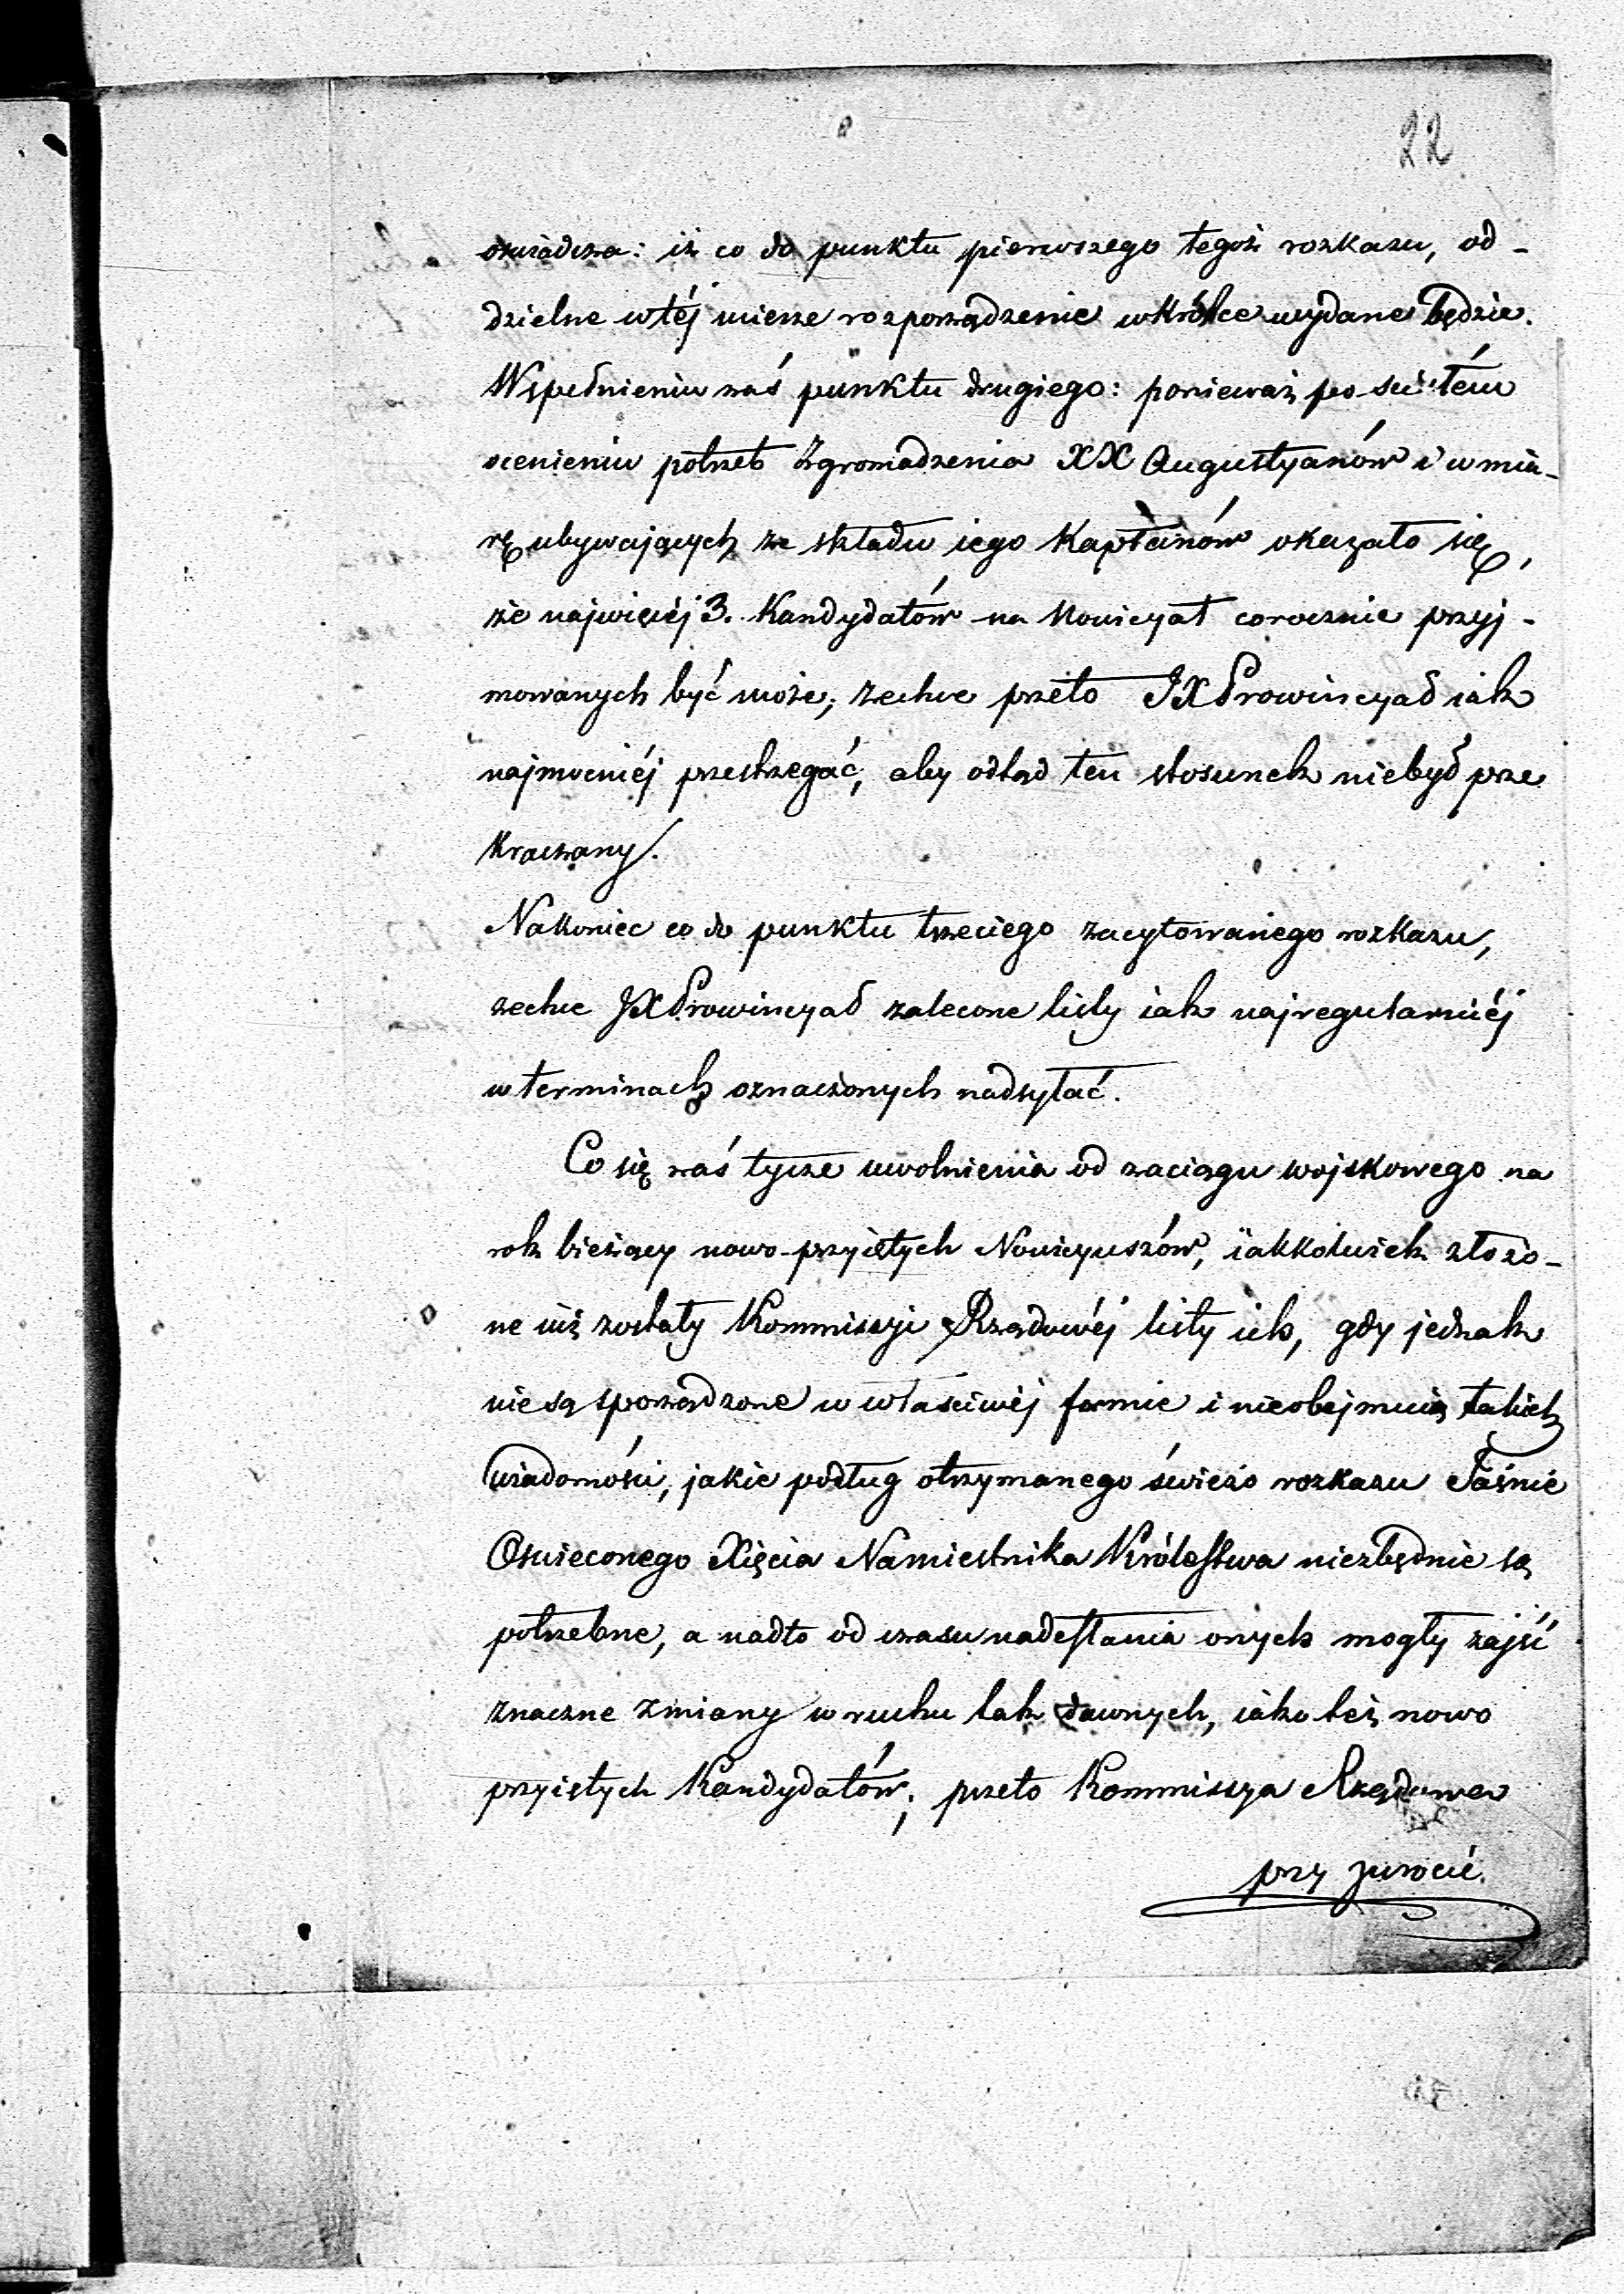 22
oświadcza: iż co do punktu pierwszego tegoż rozkazu, od-
dzielne w téj mierze rozporządzenie wkrótce wydane będzie.
W spełnieniu zaś punktu drugiego: ponieważ po ścisłém
ocenieniu potrzeb Zgromadzenia XX Augustyanów i w mia-
rę ubywających ze składu iego Kapłanów okazało się,
że najwięcéj 3. Kandydatów na Nowicyat corocznie przyj-
mowanych być może; zechce przeto JX Prowincyał iak
najmocniéj przestrzegać, aby odtąd ten stosunek niebył prze
kraczany.
Nakoniec co do punktu trzeciego zacytowanego rozkazu,
zechce JX Prowincyał zalecone listy iak najregularniéj
w terminach oznaczonych nadsyłać.
Co się zaś tycze uwolnienia od zaciągu wojskowego na
rok bieżący nowo-przyiętych Nowicyuszów, iakkolwiek złożo-
ne iuż zostały Kommissyi Rządowéj listy ich, gdy jednak
nie są sporządzone w właściwéj formie i nieobejmuią takich
wiadomości, jakie podług otrzymanego świeżo rozkazu Jaśnie
Oświeconego Xięcia Namiestnika Królestwa niezbędnie są
potrzebne, a nadto od czasu nadesłania onych mogły zajść
znaczne zmiany w ruchu tak dawnych, iako też nowo
przyiętych Kandydatów; przeto Kommissya Rządowa
przy zwrocie